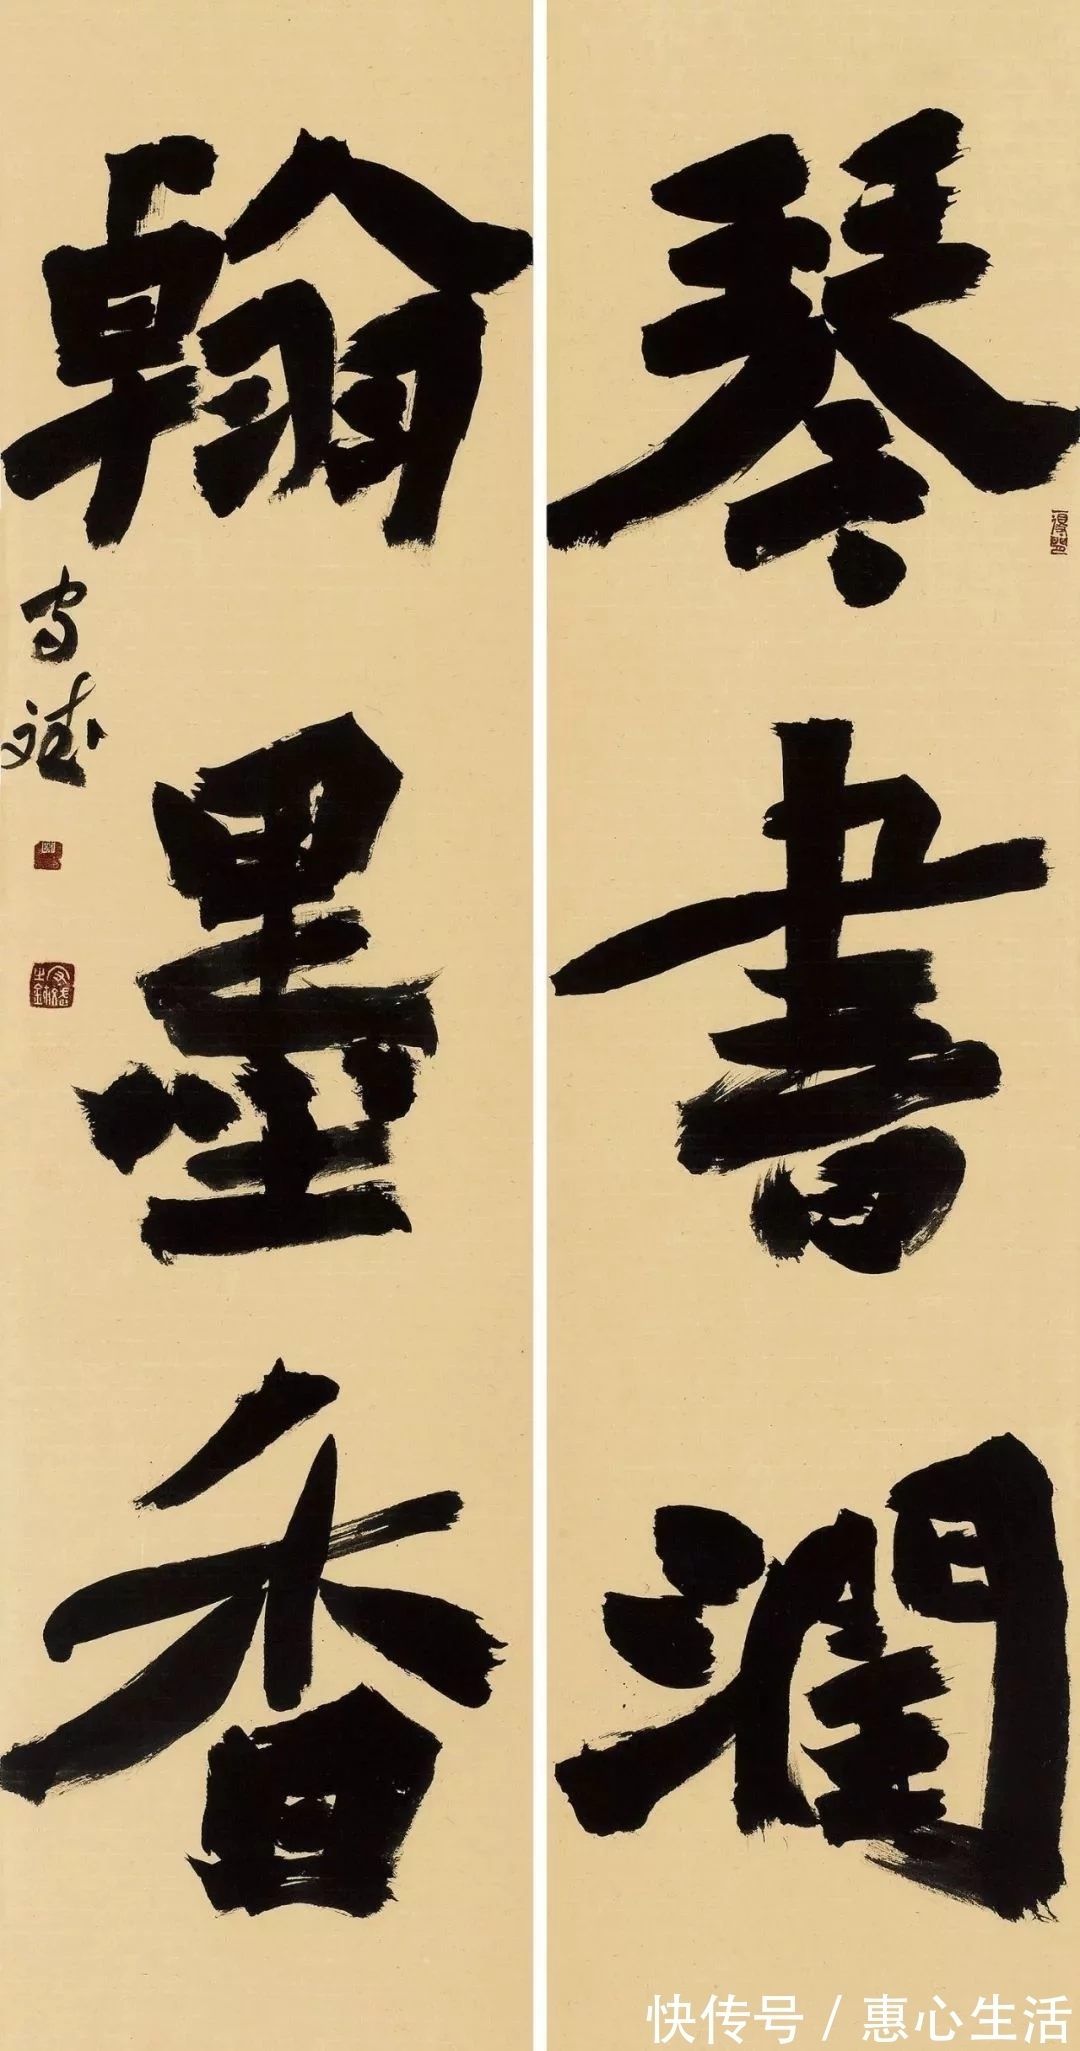 琴書潤
翰墨香
守斌
快传号 / 惠心生活